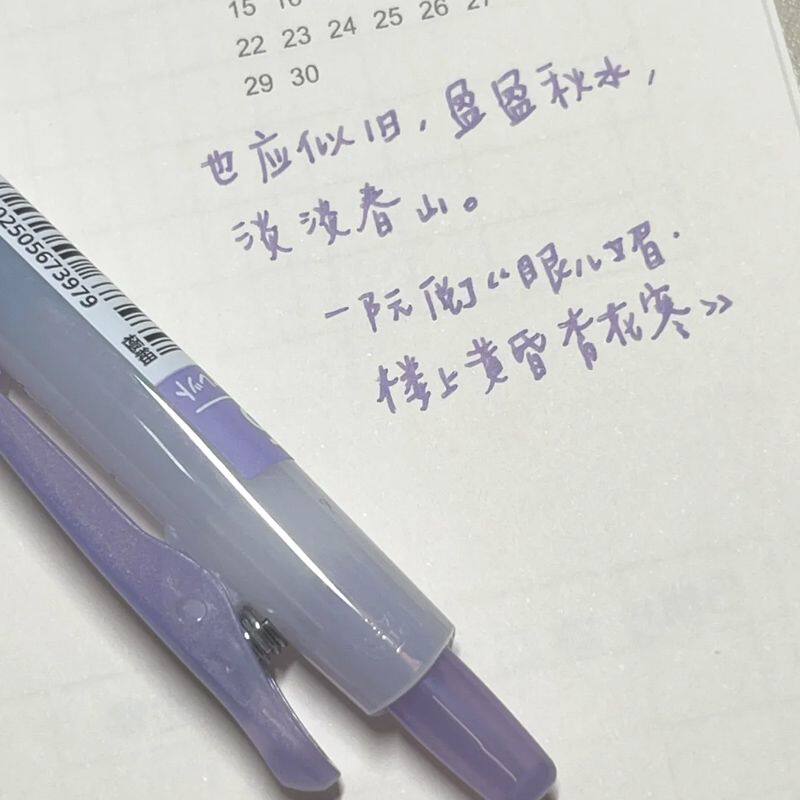 15 16
22 23 24 25 26 27
29 30
也应似旧，盈盈秋水，
淡淡春山。
一阮阅《眼儿媚·
楼上黄昏杏花寒》
02505673979
極細